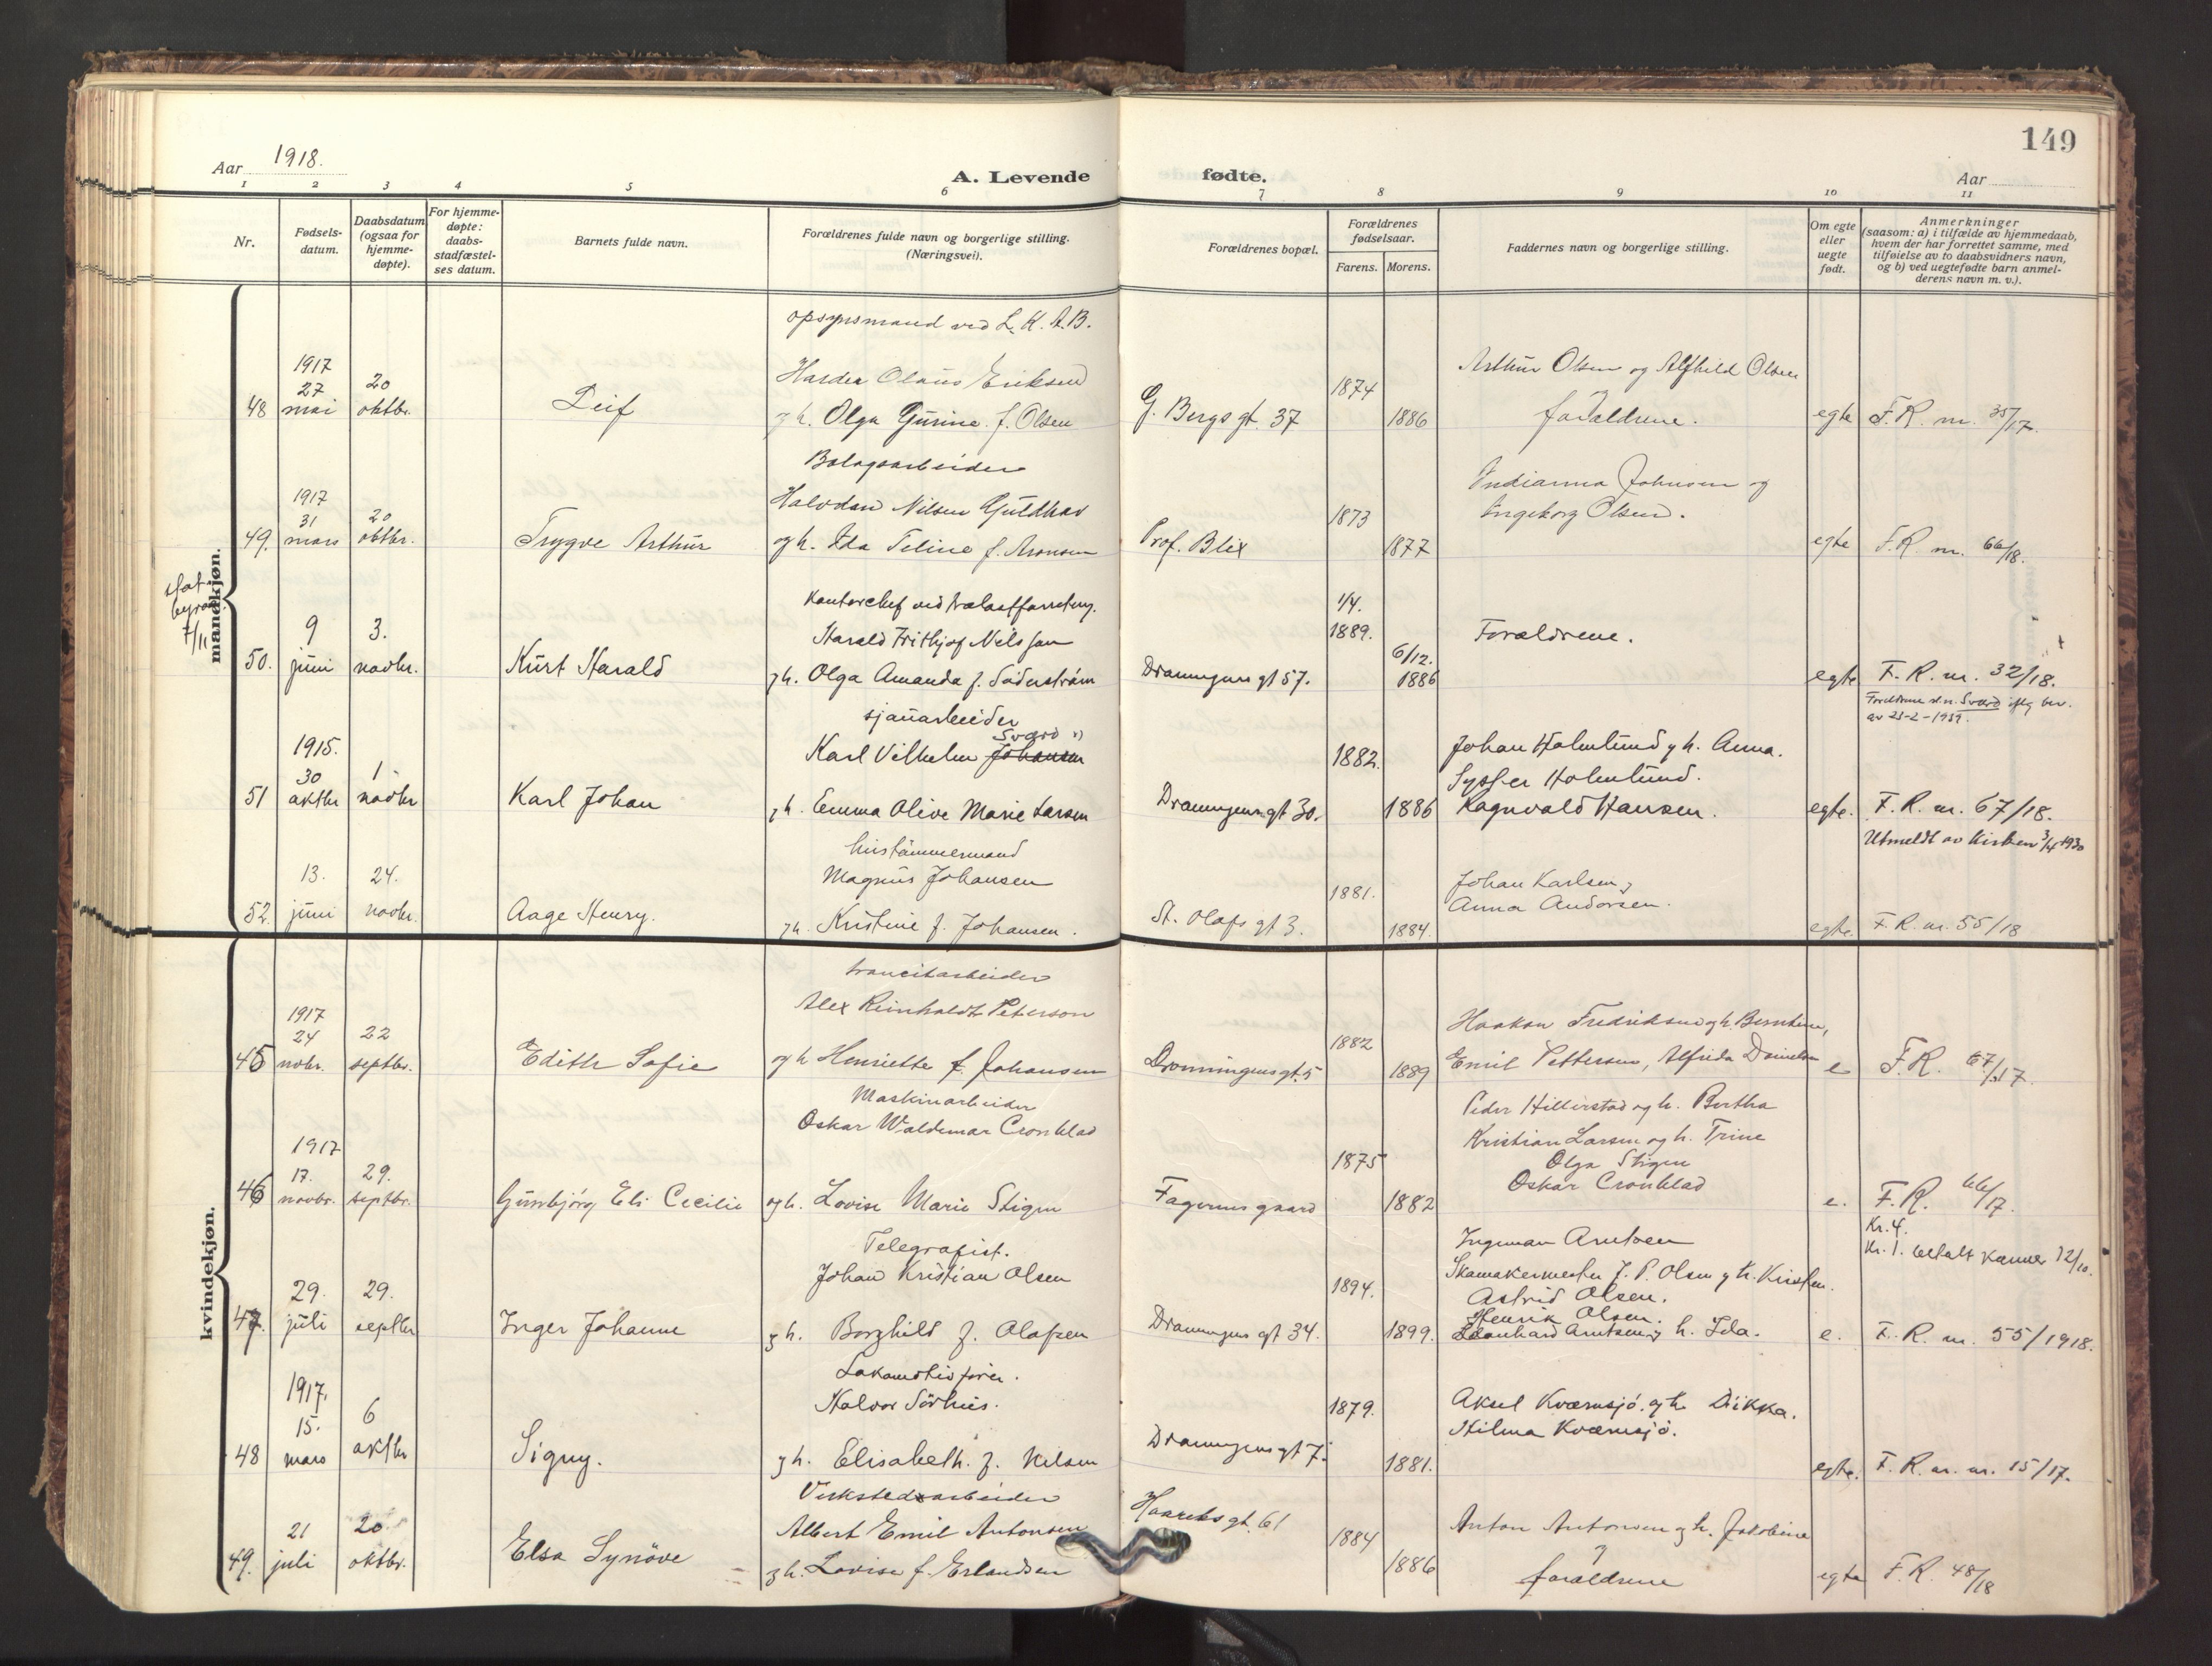 149
Aar 1918.
A. Levende fødte.
Aar
1 2 3 4 5 6 7 8 9 10 11
Nr.
Fødsels-
datum.
Daabsdatum
(ogsaa for
hjemme-
døpte).
For hjemme-
døpte:
daabs-
stadfæstel-
ses datum.
Barnets fulde navn.
Forældrenes fulde navn og borgerlige stilling.
(Næringsvei).
Forældrenes bopæl.
Forældrenes
fødselsaar.
Farens. Morens.
Faddernes navn og borgerlige stilling.
Om egte
eller
uegte
født.
Anmerkninger
(saasom: a) i tilfælde av hjemmedaab,
hvem der har forrettet samme, med
tilføielse av to daabsvidners navn,
og b) ved uegtefødte barn anmel-
derens navn m. v.).
mandkjøn.
7/11
48
1917
27
mai
20
oktbr.
Leif
opsynsmand ved L. K. A. B.
Olaus Eriksen
og h. Olga Gurine f. Olsen
G. Bergs gt. 37
1874
1886
Arthur Olsen og Alfhild Olsen
forældrene.
egte
F. R. nr. 35/17.
49.
1917
31
mars
20
oktbr.
Trygve Arthur
Bolagsarbeider
Halvdan Nilsen Guldhav
og h. Ida Teline f. Aronsen
Prof. Blix
1873
1877
Indianna Johnsen og
Ingeborg Olsen.
egte
F. R. nr. 66/18.
50.
9
juni
3.
novbr.
Kurt Harald
Harald Frithjof Nilsson
og h. Olga Amanda f. Söderström
Dronningens gt 57.
1/4.
1889.
6/12.
1886
Forældrene.
egte
F. R. nr. 32/18.
51
1915.
30
oktbr
1
novbr
Karl Johan
sjauarbeider
Sværd 1)
Karl Vilhelm Johansen
og h. Emma Olive Marie Larsen
Dronningens gt 30.
1882.
1886
Johan Holmlund og h. Anna.
Holmlund.
Ragnvald Hansen.
egte.
F. R. nr. 67/18.
Foreldrene
av 23-2-1939.
52.
13.
juni
24.
novbr.
Aage Henry.
hustømmermand
Magnus Johansen
og h. Kristine f. Johansen.
St. Olafs gt 3.
1881.
1884.
Johan Karlsen,
Anna Andorsen.
egte.
F. R. nr. 55/18
Utmeldt av Kirken 3/4 1930
kvindekjøn.
45
1917
24
novbr.
22
septbr.
Edith Sofie
transitarbeider
Alex Reinholdt Peterson
og h Henriette f. Johansen
Dronningensgt. 5
1882
1889
Haakon Fredriksen og h.
Emil Pettersen, Alfrida
e
F. R. 67/17.
46
1917
17.
novbr.
29.
septbr.
Gunbjörg Eli Cecilie
Maskinarbeider
Oskar Waldemar Cronblad
og h. Lovise Marie Stigen
Fagernes gaard
1875
1882
Peder Hillerstad og h. Bertha
Kristian Larsen og h. Trine
Olga Stigen
Oskar Cronblad
e.
F. R. 66/17.
Kr. 4.
Kr. 1. betalt 12/10.
47.
29.
juli
29.
septbr
Inger Johanne
Telegrafist.
Johan Kristian Olsen
og h. Borghild f. Olafsen
Dronningens gt 34.
1894.
1899.
Ingeman Arntsen
Skomakermester J. P. Olsen og h. Kirsten.
Astrid Olsen.
Henrik Olsen.
Leonhard Arntsen og h. Ida.
e.
F. R. nr. 55/1918.
48
1917.
15.
mars
6
oktbr
Signy.
Lokomotivfører.
Halvor Sörhus.
og h. Elisabeth f. Nilsen
Dronningens gt 7.
1879.
1881.
Aksel Kværnsjö og h. Dikka.
Hilma Kværnsjö.
egte.
F. R. nr. nr. 15/17.
49.
21
juli
20
oktbr.
Elsa Synöve
Verkstedsarbeider
Albert Emil Antonsen
og h. Lovise f. Erlandsen
Haareks gt. 61
1884
1886
Anton Antonsen og h. Jakobine
forældrene
egte
F. R. 48/18